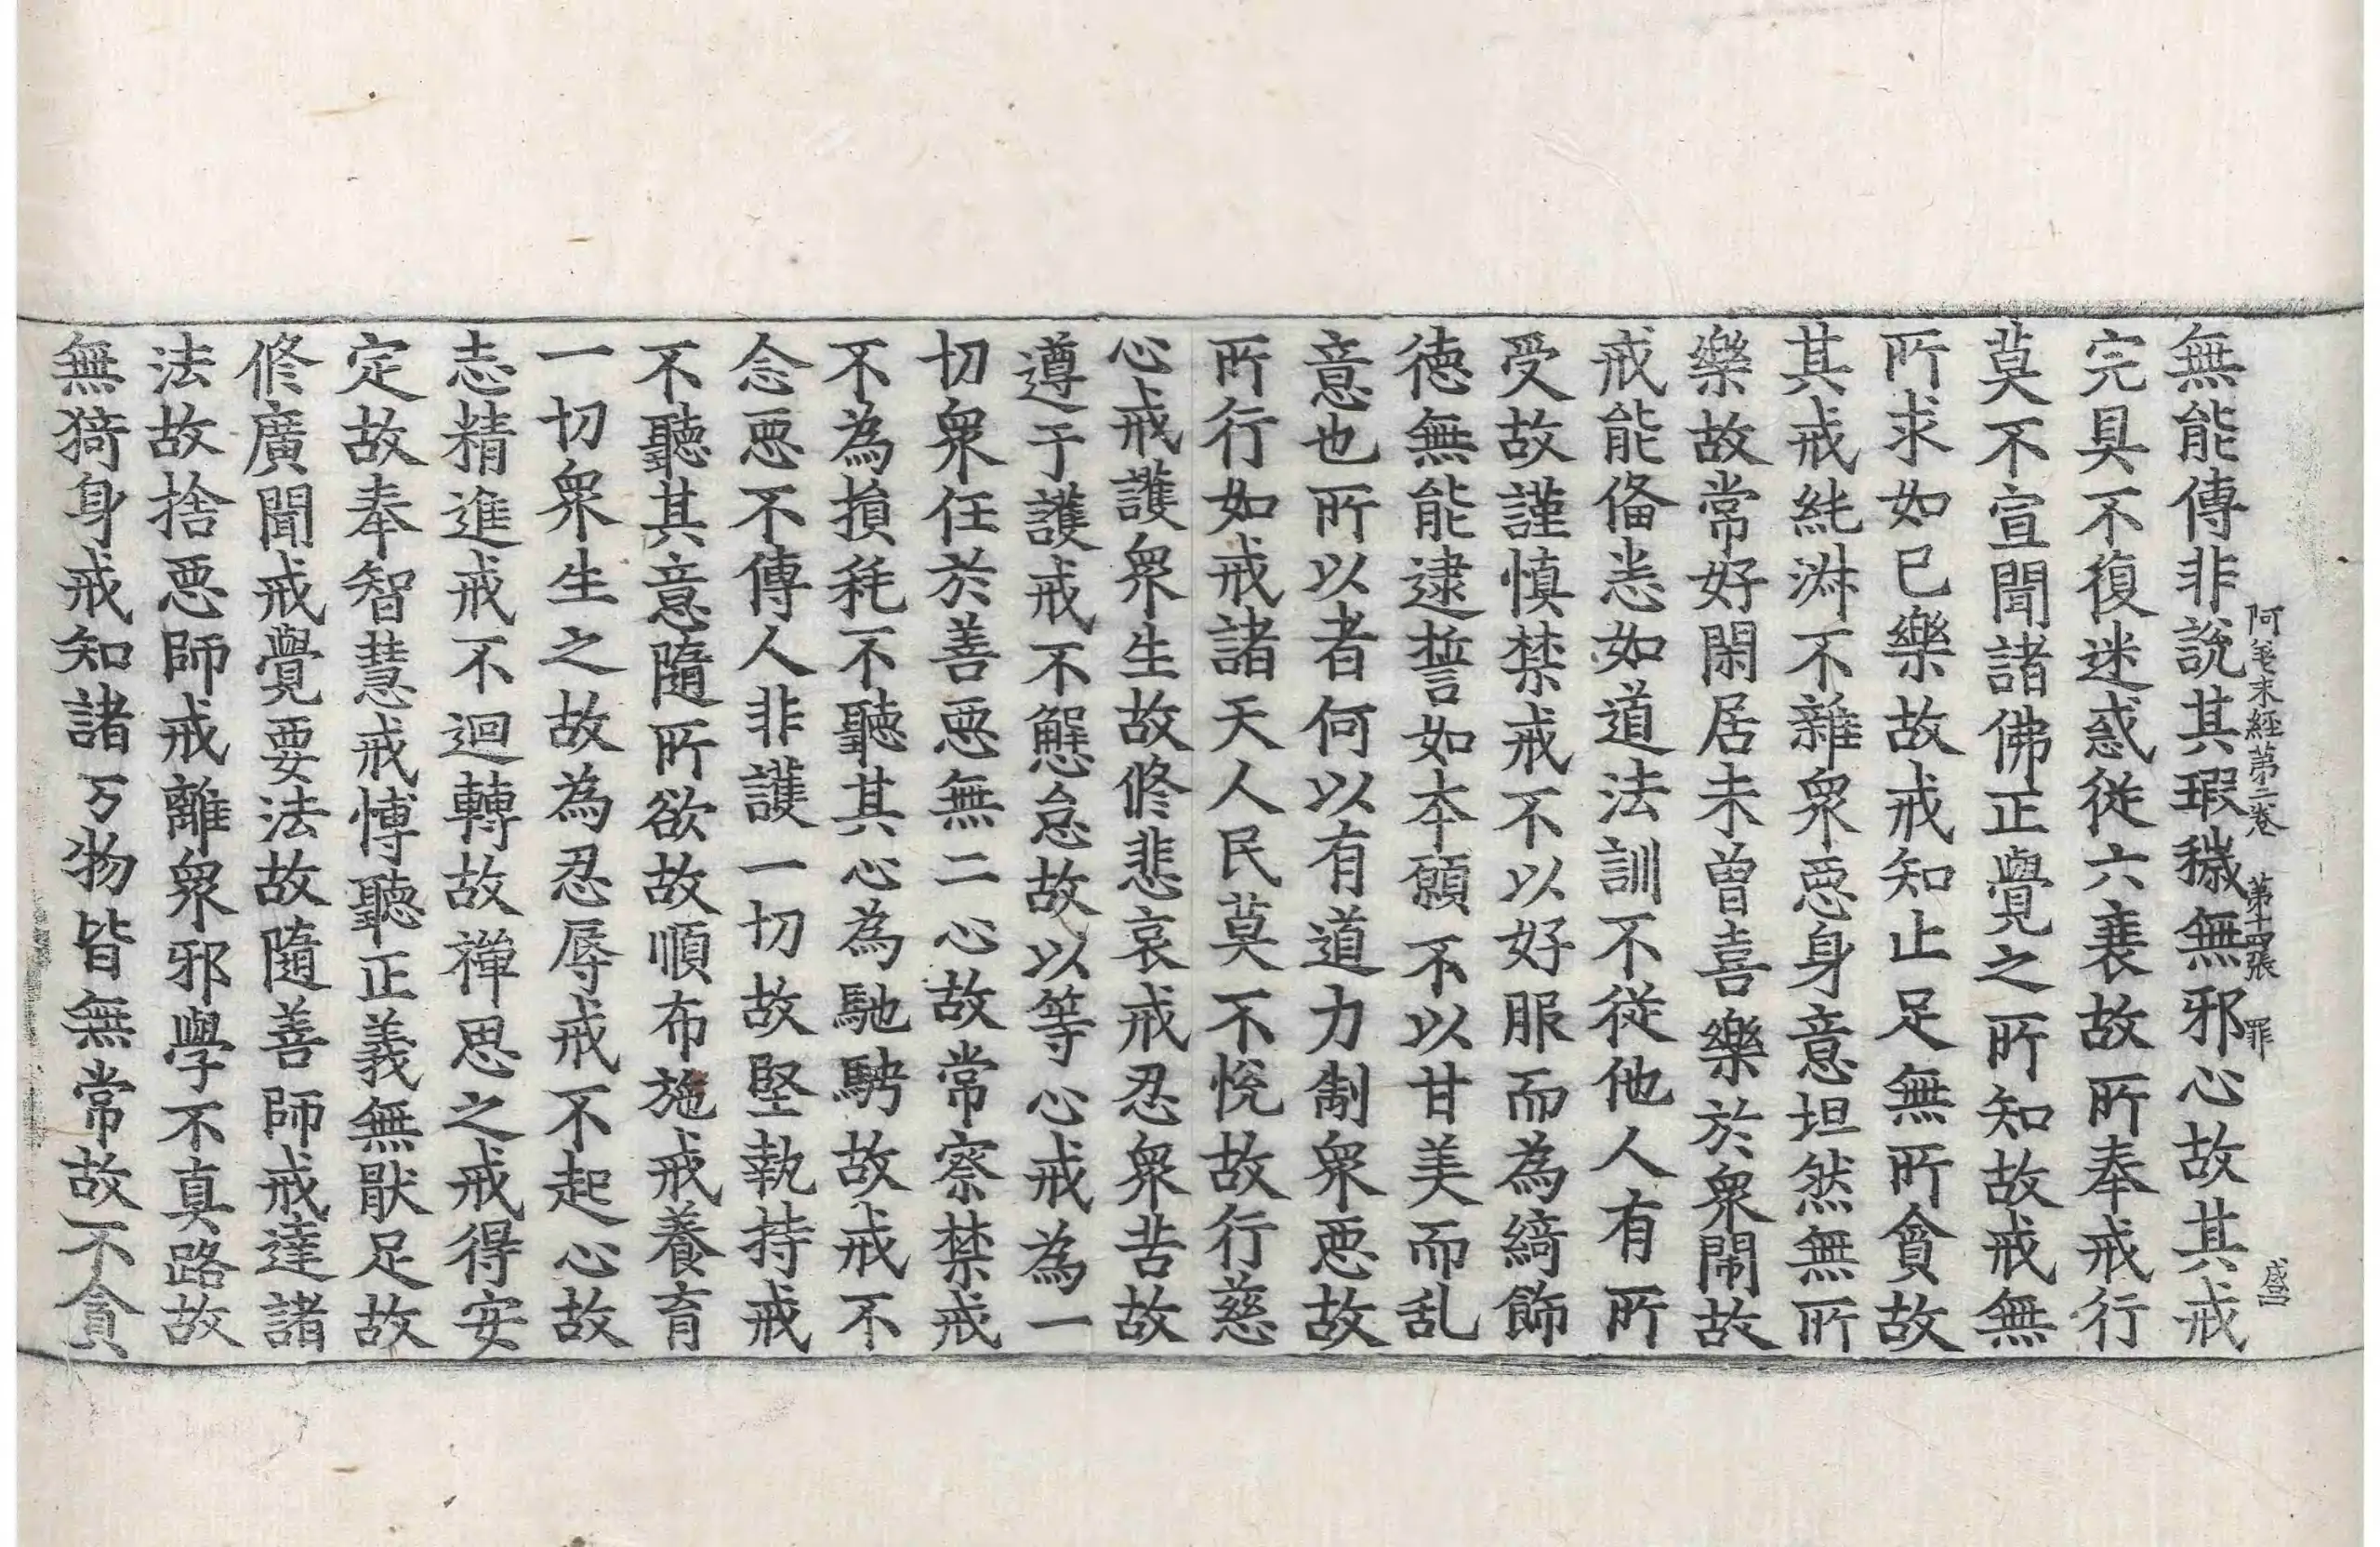 阿差末經第二卷　第十四張　罪
盛呂
無能傳非說其瑕穢無邪心故其戒
完具不復迷惑從六衰故所奉戒行
莫不宣聞諸佛正覺之所知故戒無
所求如已樂故戒知止足無所貪故
其戒純淋不雜衆惡身意坦然無所
樂故常好閑居未曾喜樂於衆閙故
戒能俻悉如道法訓不從他人有所
受故謹慎禁戒不以好服而為綺飾
德無能逮誓如本願不以甘美而乱
意也所以者何以有道力制衆惡故
所行如戒諸天人民莫不悅故行慈
心戒護衆生故修悲哀戒忍衆苦故
遵于護戒不懈怠故以等心戒為一
切衆任於善惡無二心故常察禁戒
不為損秏不聽其心為馳騁故戒不
念惡不傳人非護一切故堅執持戒
不聽其意隨所欲故順布施戒養育
一切衆生之故為忍辱戒不起心故
志精進戒不迴轉故禪思之戒得安
定故奉智慧戒慱聽正義無猒足故
修廣聞戒覺要法故隨善師戒達諸
法故捨惡師戒離衆邪學不真路故
無猗身戒知諸万物皆無常故不貪